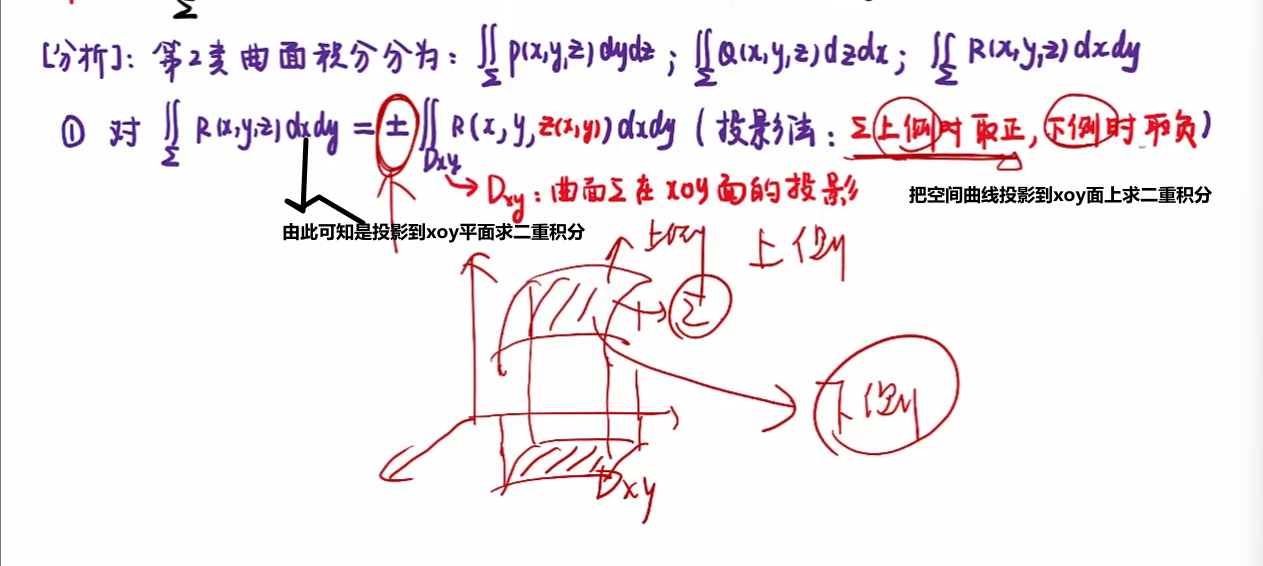 Σ
[分析]: 第2类曲面积分分为: ∬_Σ P(x,y,z)dydz; ∬_Σ Q(x,y,z)dzdx; ∬_Σ R(x,y,z)dxdy
① 对 ∬_Σ R(x,y,z)dxdy = ± ∬_Dxy R(x,y,z(x,y))dxdy (投影法: Σ上侧时取正,下侧时取负)
Dxy: 曲面Σ在xoy面的投影
把空间曲线投影到xoy面上求二重积分
由此可知是投影到xoy平面求二重积分
上侧
Σ
下侧
Dxy